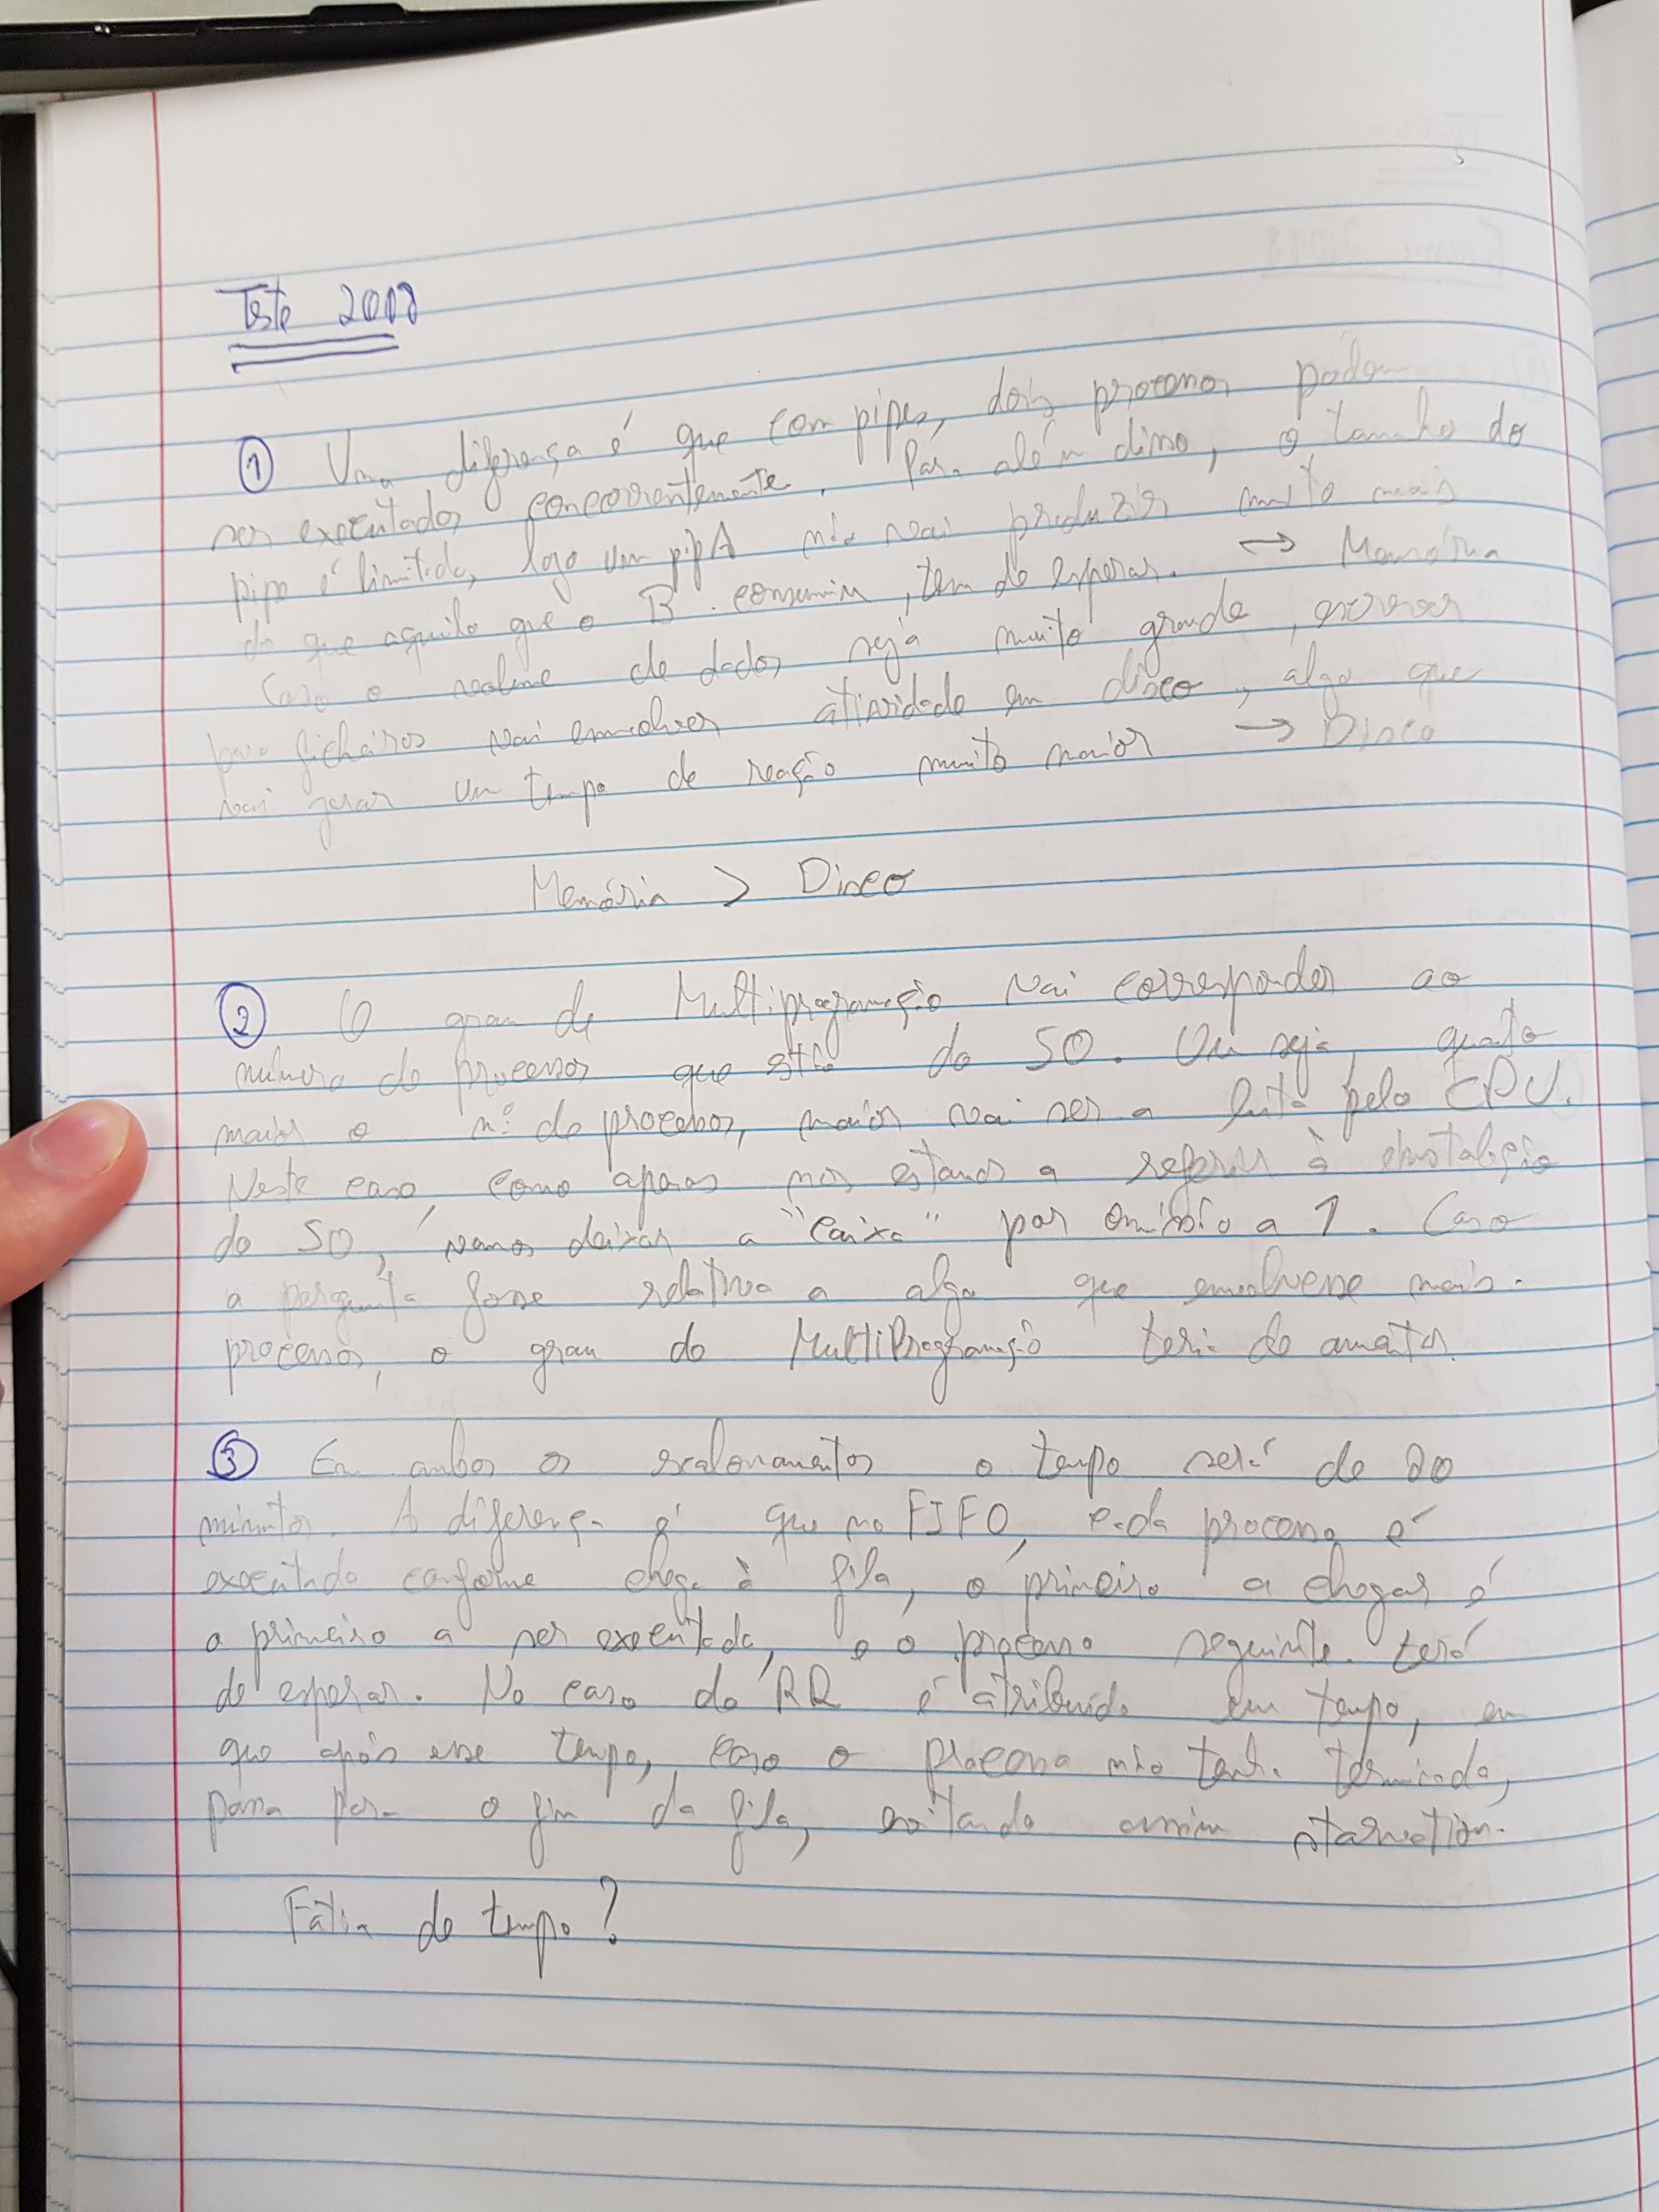 Teste 2018
① Uma diferença é que com pipes, dois processos podem
ser executados concorrentemente. Para além disso, o tamanho do
pipe é limitado, logo um pipA não vai produzir muito mais
do que aquilo que o B consumir, tem de esperar. → Memória
Caso o volume de dados seja muito grande, escrever
para ficheiros vai envolver atividade em disco, algo que
vai gerar um tempo de reação muito maior → Disco
Memória > Disco
② O grau de Multiprogramação vai corresponder ao
número de processos que estão do SO. Ou seja, quanto
maior o nº de processos, maior vai ser a luta pelo CPU.
Neste caso, como apenas nos estamos a referir à instalação
do SO, vamos deixar a "caixa" por omissão a 1. Caso
a pergunta fosse relativa a algo que envolvesse mais
processos, o grau de MultiProgramação teria de aumentar.
③ Em ambos os escalonamentos o tempo será de 20
minutos. A diferença é que no FIFO, cada processo é
executado conforme chega à fila, o primeiro a chegar é
o primeiro a ser executado, e o processo seguinte terá
de esperar. No caso do RR é atribuído um tempo, em
que após esse tempo, caso o processo não tenha terminado,
passa para o fim da fila, evitando assim starvation.
Fatia de tempo?